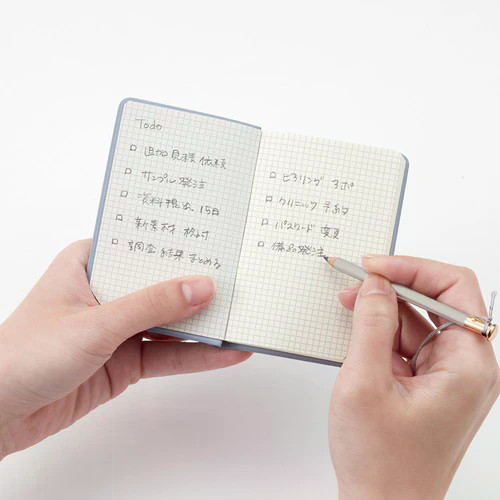 Todo
□ 追加見積依頼
□ サンプル発注
□ 資料提出、15日
□ 新素材 検討
□ 調査結果まとめる
□ ヒアリング
□ クリニック 予約
□ パスワード 変更
□ 備品発注